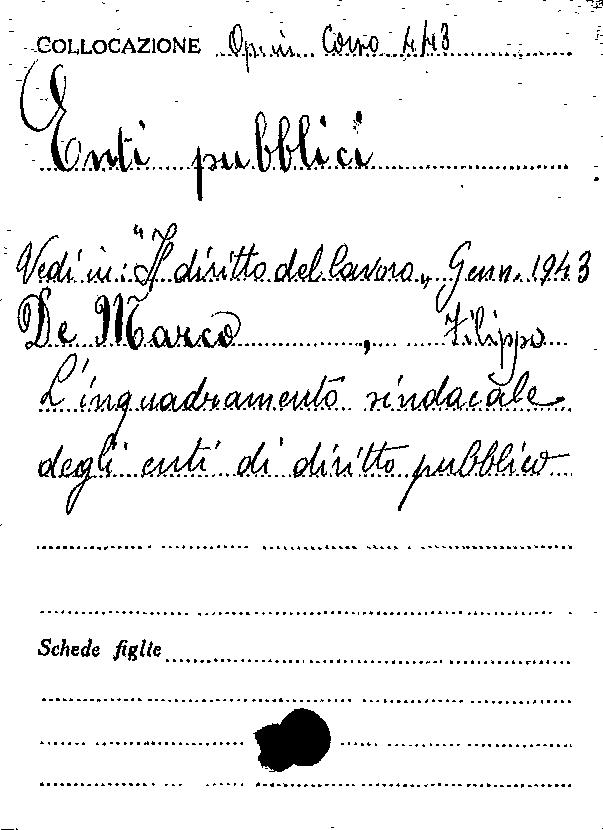 COLLOCAZIONE Op. in Corso 443
Enti pubblici
Vedi in: "Il diritto del lavoro„ Genn. 1943
De Marco, Filippo
L'inquadramento sindacale
degli enti di diritto pubblico
Schede figlie